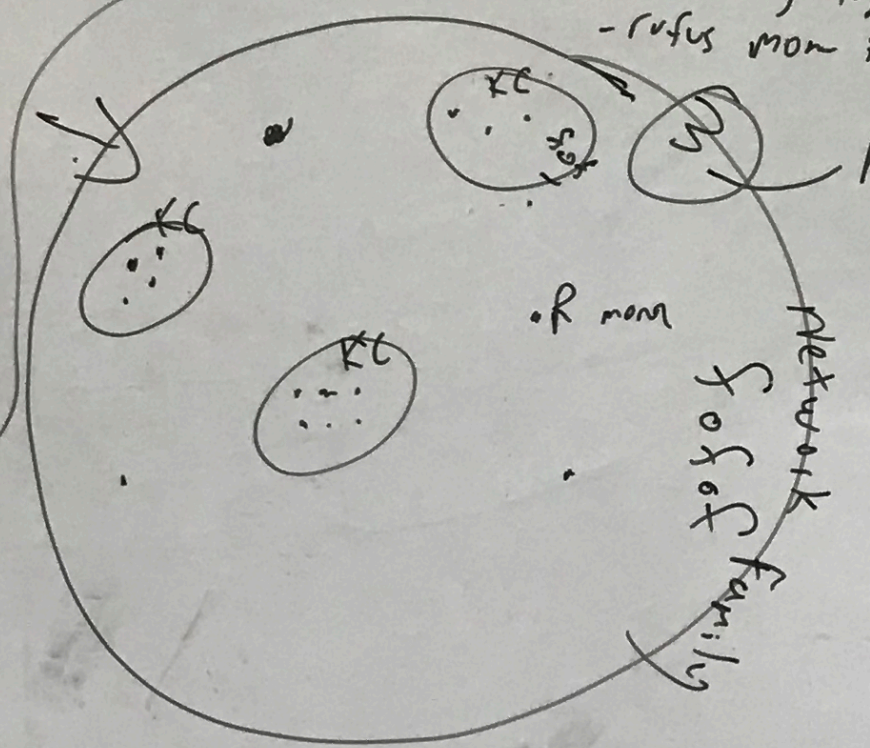 - rufus mom
KC
KC
KC
.R mom
Network
fofof family